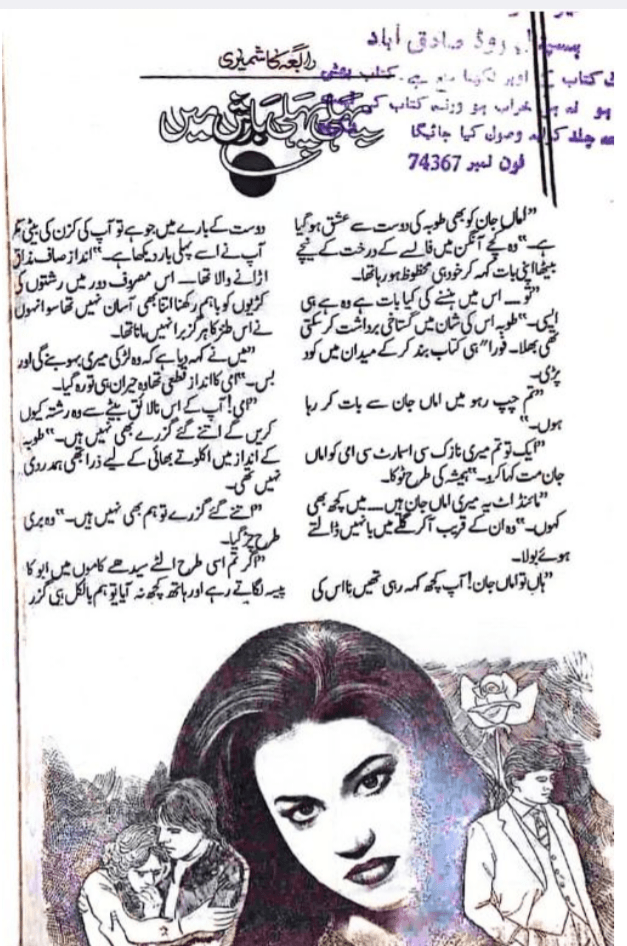 ہسپتال روڈ صادق آباد
کتاب پر اوپر لکھنا منع ہے۔ کتاب پھٹی
ہو نہ ہی خراب ہو ورنہ کتاب کی قیمت
جلد کرایہ وصول کیا جائیگا
فون نمبر 74367
رابعہ کاشمیری
پہلی پہلی بارش میں
”اماں جان کو بھی طوبہ کی دوست سے عشق ہو گیا
ہے۔“ وہ کچے آنگن میں فالسے کے درخت کے نیچے
بیٹھا اپنی بات کہہ کر خود ہی محظوظ ہو رہا تھا۔
”تو ــ اس میں ہنسنے کی کیا بات ہے وہ ہے ہی
ایسی۔“ طوبہ اس کی شان میں گستاخی برداشت کر سکتی
تھی بھلا۔ فوراً ہی کتاب بند کر کے میدان میں کود
پڑی۔
”تم چپ رہو میں اماں جان سے بات کر رہا
ہوں۔“
”ایک تو تم میری نازک سی اسمارٹ سی امی کو اماں
جان مت کہا کرو۔“ ہمیشہ کی طرح ٹوکا۔
”مائنڈ اٹ یہ میری اماں جان ہیں ــ میں کچھ بھی
کہوں۔“ وہ ان کے قریب آ کر گلے میں بانہیں ڈالتے
ہوئے بولا۔
”ہاں تو اماں جان! آپ کچھ کہہ رہی تھیں نا اس کی
دوست کے بارے میں جو ہے تو آپ کی کزن کی بیٹی مگر
آپ نے اسے پہلی بار دیکھا ہے۔“ انداز صاف مذاق
اڑانے والا تھا ــ اس مصروف دور میں رشتوں کی
کڑیوں کو باہم رکھنا اتنا بھی آسان نہیں تھا سو انہوں
نے اس طنز کا ہرگز برا نہیں مانا تھا۔
”میں نے کہہ دیا ہے کہ وہ لڑکی میری بہو بنے گی اور
بس۔“ امی کا انداز قطعی تھا وہ حیران ہی تو رہ گیا۔
”امی! آپ کے اس نالائق بیٹے سے وہ رشتہ کیوں
کریں گے اتنے گئے گزرے بھی نہیں ہیں۔“ طوبہ
کے انداز میں اکلوتے بھائی کے لیے ذرا بھی ہمدردی
نہیں تھی۔
”اتنے گئے گزرے تو ہم بھی نہیں ہیں۔“ وہ بری
طرح چڑ گیا۔
”اگر تم اسی طرح الٹے سیدھے کاموں میں ابو کا
پیسہ لگاتے رہے اور ہاتھ کچھ نہ آیا تو ہم بالکل ہی گزر